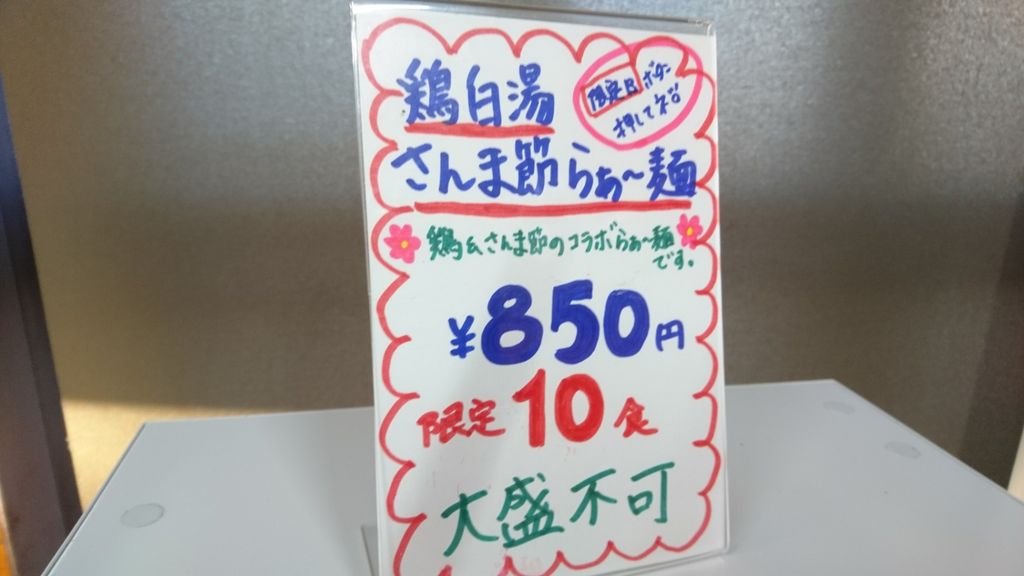 鶏白湯
限定B ボタン
押して下さい
さんま節らぁ〜麺
鶏&さんま節のコラボらぁ〜麺
です。
¥850円
限定10食
大盛不可